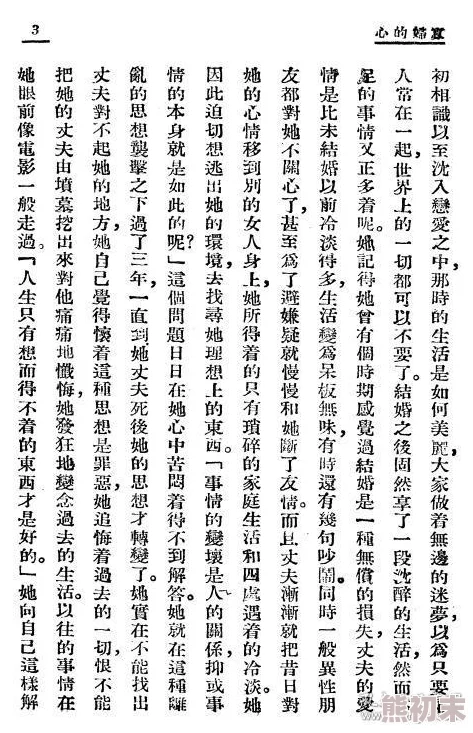 寡婦的心
3
初相識以至沈入戀愛之中,那時的生活是如何美麗,大家做着無邊的迷夢,以爲只要
人常在一起,世界上的一切都可以不要了。結婚之後固然享了一段沈醉的生活,然而
的事情又正多着呢。她記得她曾有個時期感覺過結婚是一種無償的損失,丈夫的愛
是比未結婚以前冷淡得多,生活變爲呆板無味,有時還有幾句吵鬧。同時一般異性朋
友都對她不關心了,甚至爲了避嫌疑就慢慢和她斷了友情。而且丈夫漸漸就把昔日對
她的心情移到別的女人身上,她所得着的只有瑣碎的家庭生活和四處遇着的冷淡。她
因此迫切想逃出她的環境,去找尋她理想上的東西。「事情的變壞是人的關係,抑或事
情的本身就是如此的呢?」這個問題日日在她心中苦悶着得不到解答。她就在這種
亂的思想襲擊之下過了三年,一直到她丈夫死後她的思想才轉變了。她實在不能找出
丈夫對不起她的地方,她自己覺得懷着這種思想是罪惡,她追悔着過去的一切,恨不能
把她的丈夫由墳墓挖出來對他痛痛地懺悔,她發狂地戀念過去的生活。以往的事情在
她眼前像電影一般走過。「人生只有想而得不着的東西才是好的。」她向自己這樣解
熊初末